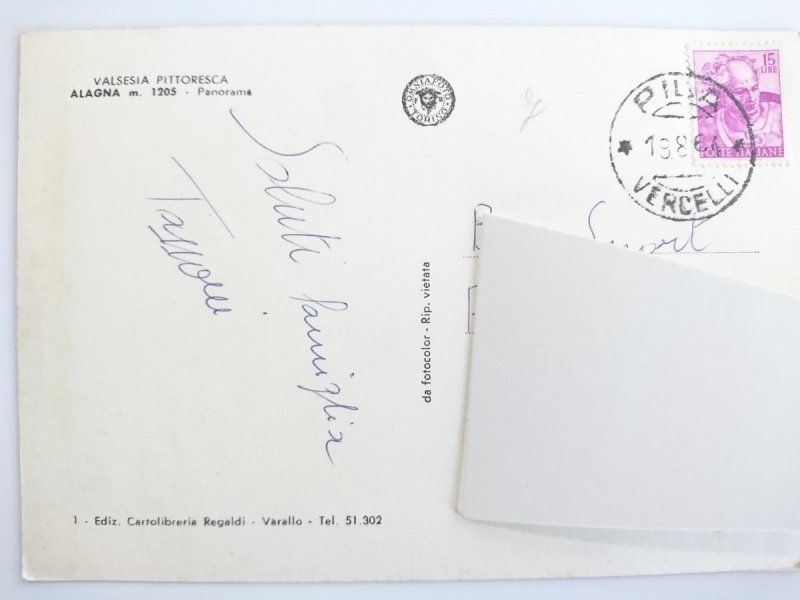 VALSESIA PITTORESCA
ALAGNA m. 1205 - Panorama
OMNIAFOTO
TORINO
15
LIRE
POSTE ITALIANE
PILA
19.8.64
VERCELLI
Saluti famiglia
da fotocolor - Rip. vietata
1 - Ediz. Cartolibreria Regaldi - Varallo - Tel. 51.302